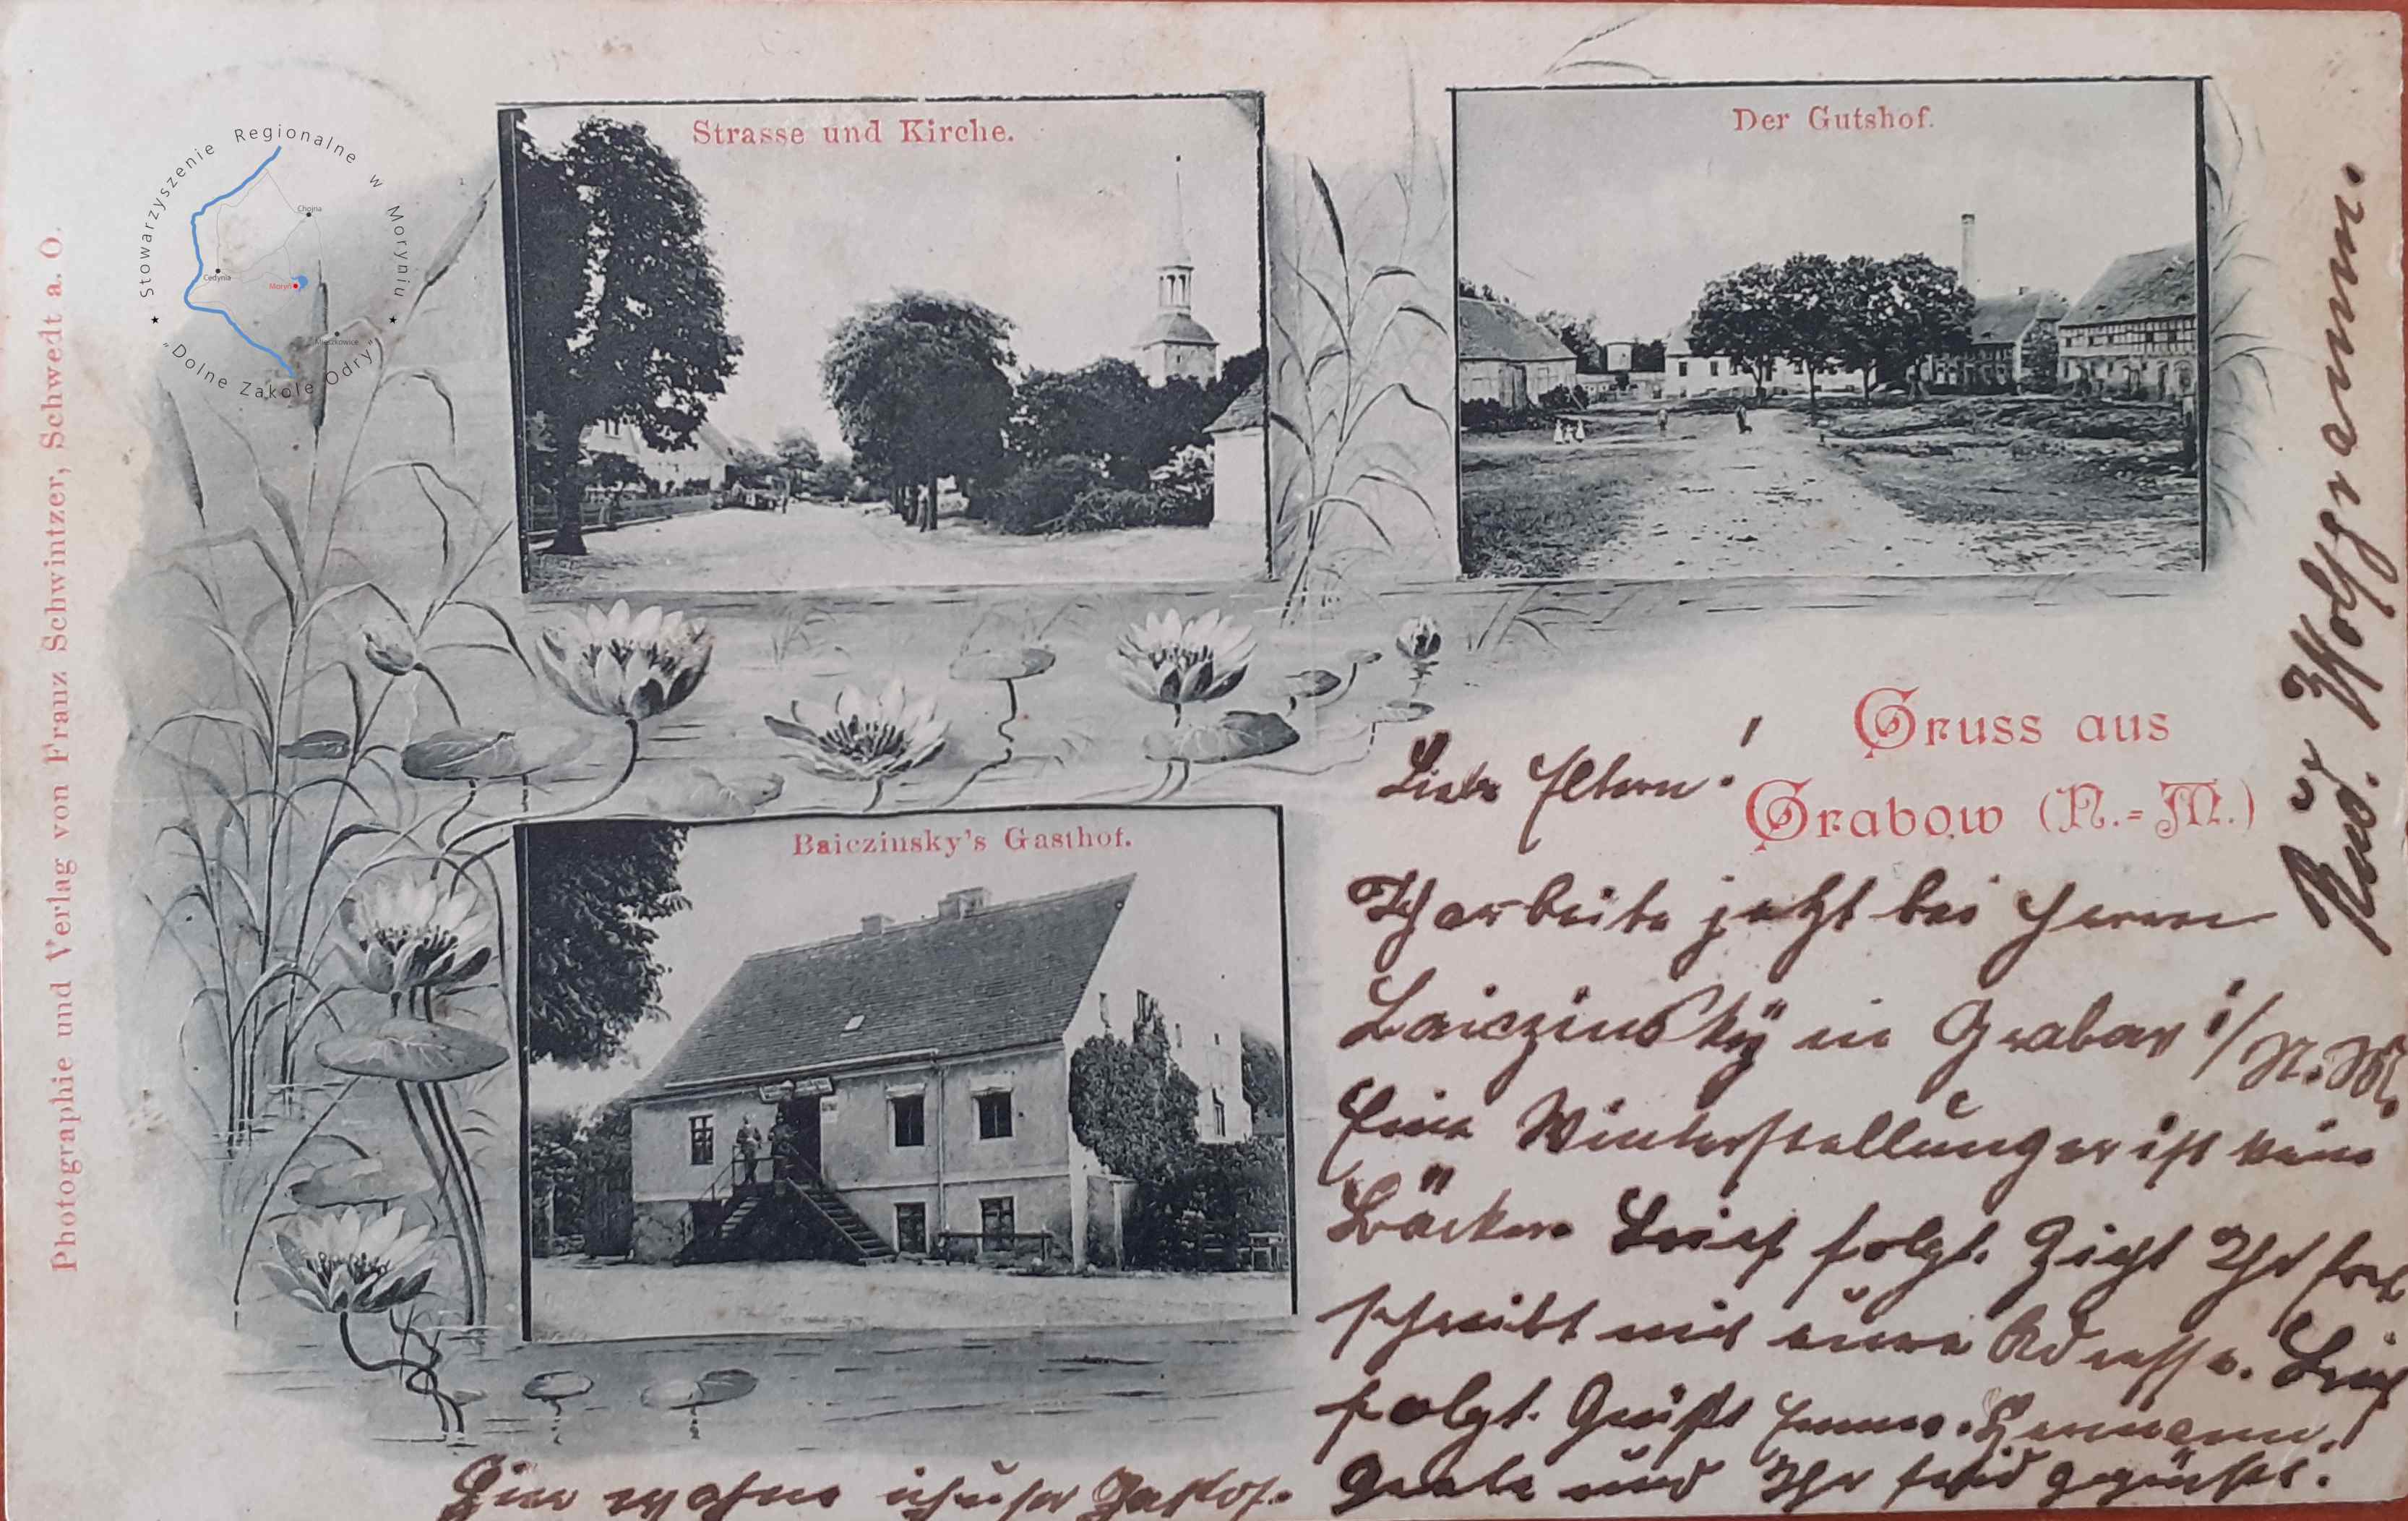 Stowarzyszenie Regionalne w Moryniu
"Dolne Zakole Odry"
Chojna
Cedynia
Moryń
Mieszkowice
Photographie und Verlag von Franz Schwintzer, Schwedt a. O.
Strasse und Kirche.
Der Gutshof.
Baiczinsky's Gasthof.
Gruss aus
Grabow (N.-M.)
Liebe Eltern!
Ich arbeite jetzt bei Herrn
Baiczinsky in Grabow i/N.M.
Eine Winterstellung er ist kein
Bäcker. Brief folgt. Zieht Ihr
schreibt mir eure Adresse. Brief
folgt. Grüßt Hermann.
und Ihr seid gegrüßt.
Hier wohne ich
Rud. Wolfgramm.